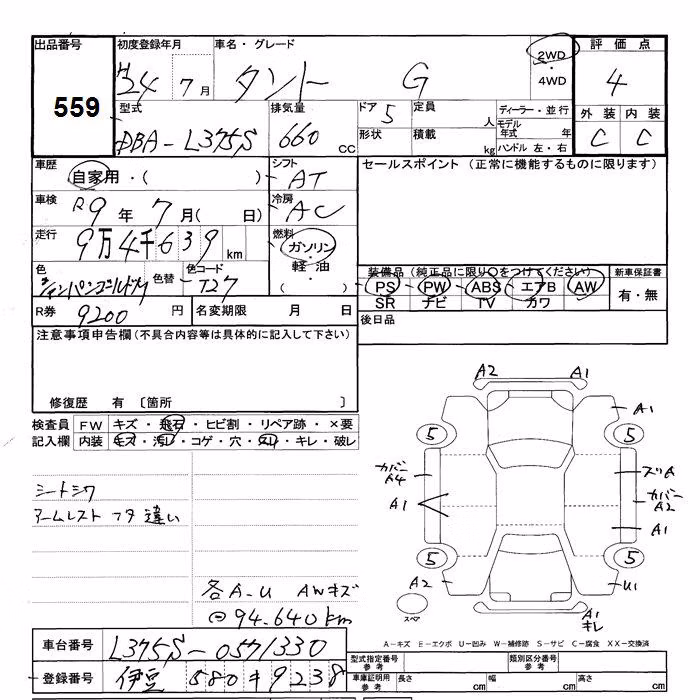 出品番号 初度登録年月 車名・グレード 2WD 評価点
559
H24年 7月 タント G ・4WD 4
型式 排気量 ドア 5 定員 人 ディーラー・並行 外装 内装
DBA-L375S 660 CC 形状 積載 kg モデル年式 年 ハンドル 左・右 C C
車歴 自家用・( ) シフト AT セールスポイント (正常に機能するものに限ります)
車検 R9年 7月( 日) 冷房 AC
走行 9万4千639km 燃料 ガソリン・
軽油・
( )
色 シャンパンゴールドM 色替 色コード T27
装備品 (純正品に限り○をつけてください) 新車保証書
PS・PW・ABS・エアB・AW 有・無
SR ナビ TV カワ
R券 9200円 名変期限 月 日 後日品
注意事項申告欄(不具合内容等は具体的に記入して下さい)
修復歴 有 〔箇所 〕
検査員 FW キズ・飛石・ヒビ割・リペア跡・×要
記入欄 内装 キズ・汚レ・コゲ・穴・スリ・キレ・破レ
シートシワ
アームレスト フタ 違い
各A-U AWキズ
94.640km
A2 A1
A1
5 5
カバー A4 スリA
カバー A2
A1 A1
5 5
A2 U1
スペア A1 キレ
A-キズ E-エクボ U-凹み W-補修跡 S-サビ C-腐食 XX-交換済
車台番号 L375S-0571330
登録番号 伊豆 580 キ 9238
型式指定番号 参考 類別区分番号 参考
車庫証明用 参考 長さ cm 幅 cm 高さ cm